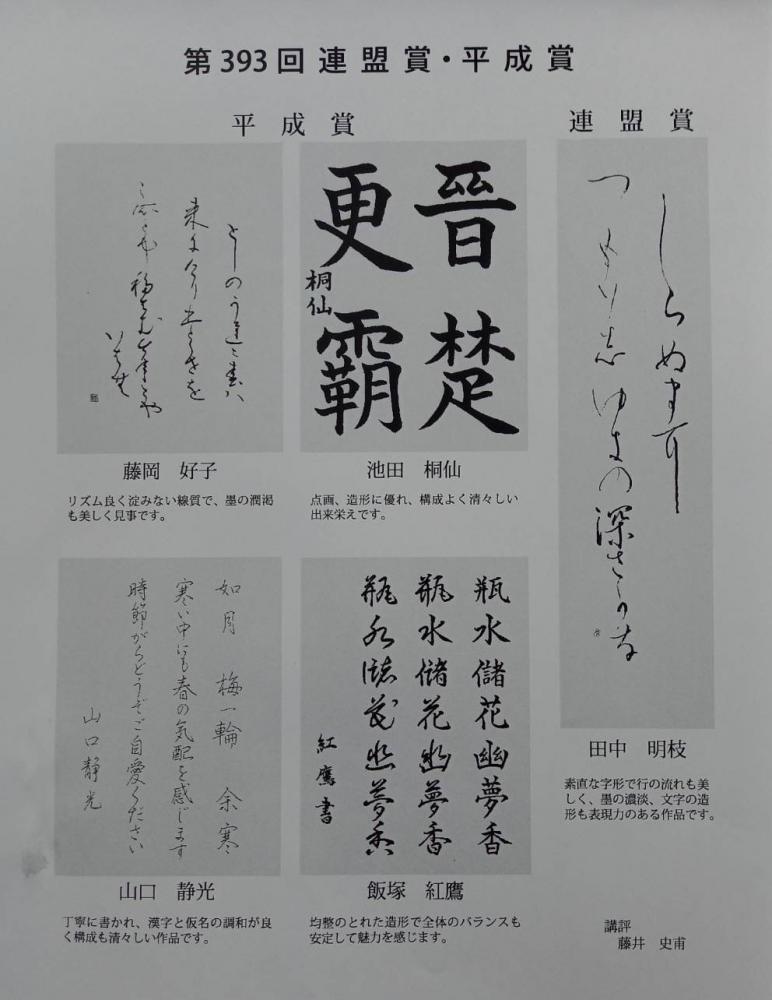 第393回 連盟賞・平成賞
連盟賞
しらぬまに
つもりし ゆきの深さかな
田中 明枝
素直な字形で行の流れも美
しく、墨の濃淡、文字の造
形も表現力のある作品です。
平成賞
晋楚
更霸
桐仙
池田 桐仙
点画、造形に優れ、構成よく清々しい
出来栄えです。
としのうちに春は
来にけり
藤岡 好子
リズム良く淀みない線質で、墨の潤渇
も美しく見事です。
瓶水儲花幽夢香
瓶水儲花幽夢香
瓶水儲花幽夢香
紅鷹書
飯塚 紅鷹
均整のとれた造形で全体のバランスも
安定して魅力を感じます。
如月 梅一輪 余寒
寒い中にも春の気配を感じます
時節がらどうぞご自愛ください
山口静光
山口 静光
丁寧に書かれ、漢字と仮名の調和が良
く構成も清々しい作品です。
講評
藤井 史甫